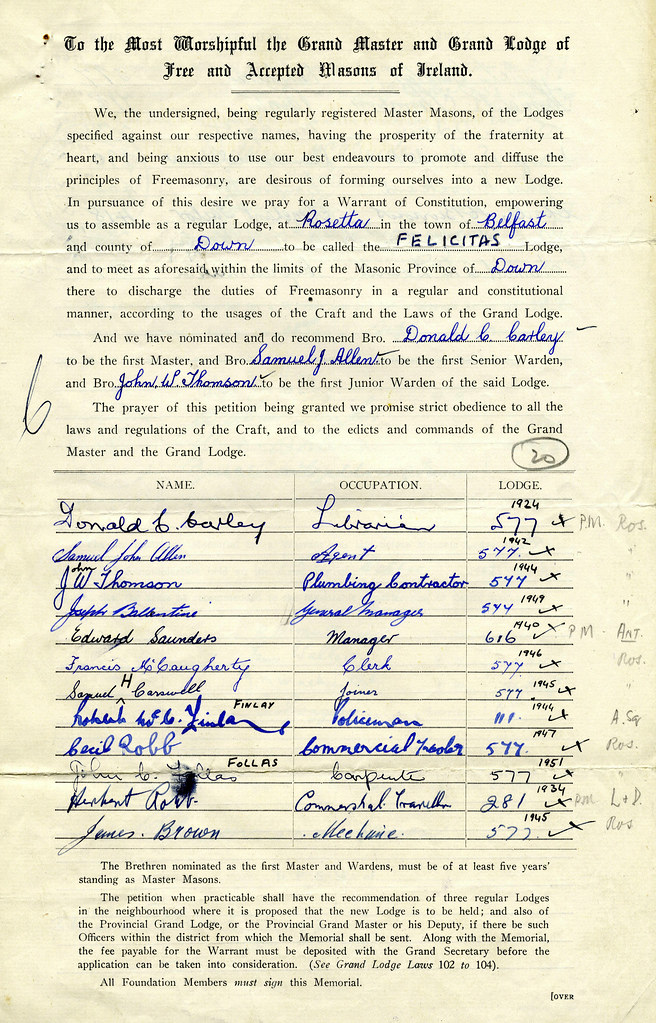 To the Most Worshipful the Grand Master and Grand Lodge of
Free and Accepted Masons of Ireland.
We, the undersigned, being regularly registered Master Masons, of the Lodges
specified against our respective names, having the prosperity of the fraternity at
heart, and being anxious to use our best endeavours to promote and diffuse the
principles of Freemasonry, are desirous of forming ourselves into a new Lodge.
In pursuance of this desire we pray for a Warrant of Constitution, empowering
us to assemble as a regular Lodge, at Rosetta in the town of Belfast
and county of Down to be called the FELICITAS Lodge,
and to meet as aforesaid within the limits of the Masonic Province of Down
there to discharge the duties of Freemasonry in a regular and constitutional
manner, according to the usages of the Craft and the Laws of the Grand Lodge.
And we have nominated and do recommend Bro. Donald C. Carley
to be the first Master, and Bro. Samuel J. Allen to be the first Senior Warden,
and Bro. John W Thomson to be the first Junior Warden of the said Lodge.
The prayer of this petition being granted we promise strict obedience to all the
laws and regulations of the Craft, and to the edicts and commands of the Grand
Master and the Grand Lodge.
20
NAME. OCCUPATION. LODGE.
Donald C. Carley Librarian 577 1924 P.M. Ros.
Samuel John Allen Agent 577. 1942 "
John W Thomson Plumbing Contractor 577 1944 "
Joseph Ballantine General Manager 577 1949 "
Edward Saunders Manager 616 1940 P.M. Ant.
Francis McCaugherty Clerk 577 1946 Ros.
Samuel H Carswell Joiner 577 1945 "
Mc C. Finlay FINLAY Policeman 111. 1944 A. Sq
Cecil Robb Commercial Traveler 577. 1947 Ros.
John C. Follas FOLLAS Carpenter 577 1951 "
Herbert Robb. Commercial Traveller 281 1934 P.M. L & D.
James. Brown Mechanic. 577 1945 Ros
The Brethren nominated as the first Master and Wardens, must be of at least five years'
standing as Master Masons.
The petition when practicable shall have the recommendation of three regular Lodges
in the neighbourhood where it is proposed that the new Lodge is to be held; and also of
the Provincial Grand Lodge, or the Provincial Grand Master or his Deputy, if there be such
Officers within the district from which the Memorial shall be sent. Along with the Memorial,
the fee payable for the Warrant must be deposited with the Grand Secretary before the
application can be taken into consideration. (See Grand Lodge Laws 102 to 104).
All Foundation Members must sign this Memorial.
[OVER